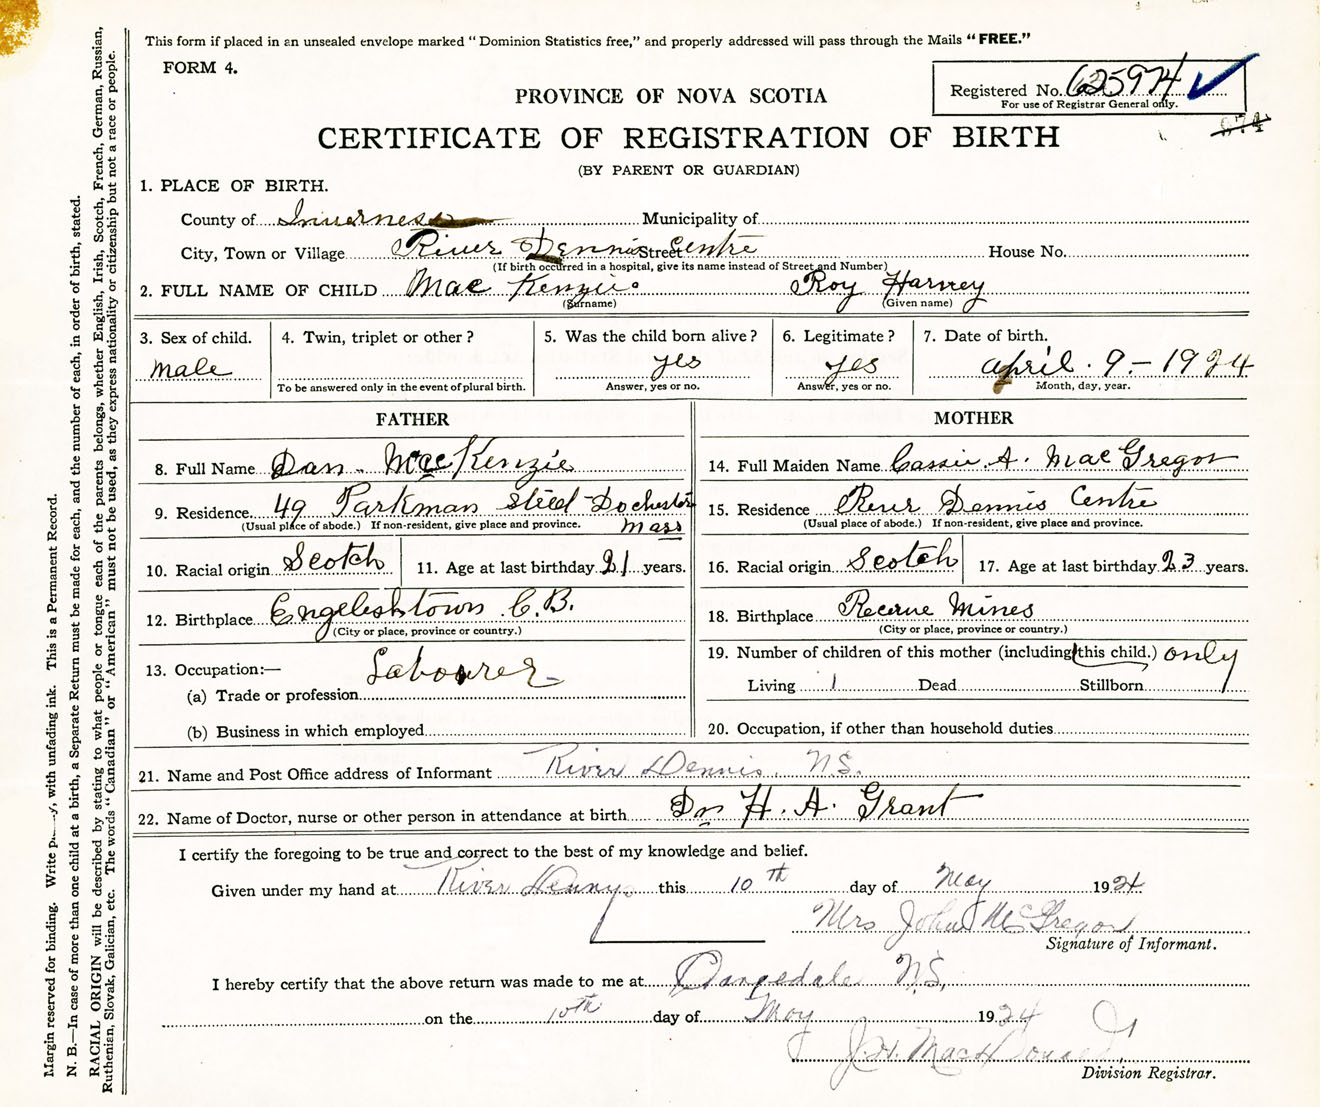 This form if placed in an unsealed envelope marked "Dominion Statistics free," and properly addressed will pass through the Mails "FREE."
FORM 4.
Registered No. 625974
For use of Registrar General only.
PROVINCE OF NOVA SCOTIA
CERTIFICATE OF REGISTRATION OF BIRTH
(BY PARENT OR GUARDIAN)
1. PLACE OF BIRTH.
County of Inverness Municipality of
City, Town or Village River Dennis Street Centre House No.
(If birth occurred in a hospital, give its name instead of Street and Number)
2. FULL NAME OF CHILD Mac Kenzie Roy Harvey
(Surname) (Given name)
3. Sex of child. 4. Twin, triplet or other? 5. Was the child born alive? 6. Legitimate? 7. Date of birth.
male yes yes april. 9 - 1924
To be answered only in the event of plural birth. Answer, yes or no. Answer, yes or no. Month, day, year.
FATHER MOTHER
8. Full Name Dan. MacKenzie 14. Full Maiden Name Cassie. A. MacGregor
9. Residence 49 Parkman Steed Dochester 15. Residence River Dennis Centre
(Usual place of abode.) If non-resident, give place and province. Mass (Usual place of abode.) If non-resident, give place and province.
10. Racial origin Scotch 11. Age at last birthday 21 years. 16. Racial origin Scotch 17. Age at last birthday 23 years.
12. Birthplace Engelishtown C.B. 18. Birthplace Recerve Mines
(City or place, province or country.) (City or place, province or country.)
13. Occupation:— Labourer 19. Number of children of this mother (including this child.) only
(a) Trade or profession Living 1 Dead Stillborn
(b) Business in which employed 20. Occupation, if other than household duties
21. Name and Post Office address of Informant River Dennis. N.S.
22. Name of Doctor, nurse or other person in attendance at birth Dr H. A. Grant
I certify the foregoing to be true and correct to the best of my knowledge and belief.
Given under my hand at River Dennys this 10th day of May 1924
Mrs John McGregor
Signature of Informant.
I hereby certify that the above return was made to me at Orangedale N.S.
on the 10th day of May 1924
J. H. MacDonald
Division Registrar.
Margin reserved for binding. Write with unfading ink. This is a Permanent Record.
N. B.—In case of more than one child at a birth, a Separate Return must be made for each, and the number of each, in order of birth, stated.
RACIAL ORIGIN will be described by stating to what people or tongue each of the parents belongs, whether English, Irish, Scotch, French, German, Russian,
Ruthenian, Slovak, Galician, etc. The words "Canadian" or "American" must not be used, as they express nationality or citizenship but not a race or people.